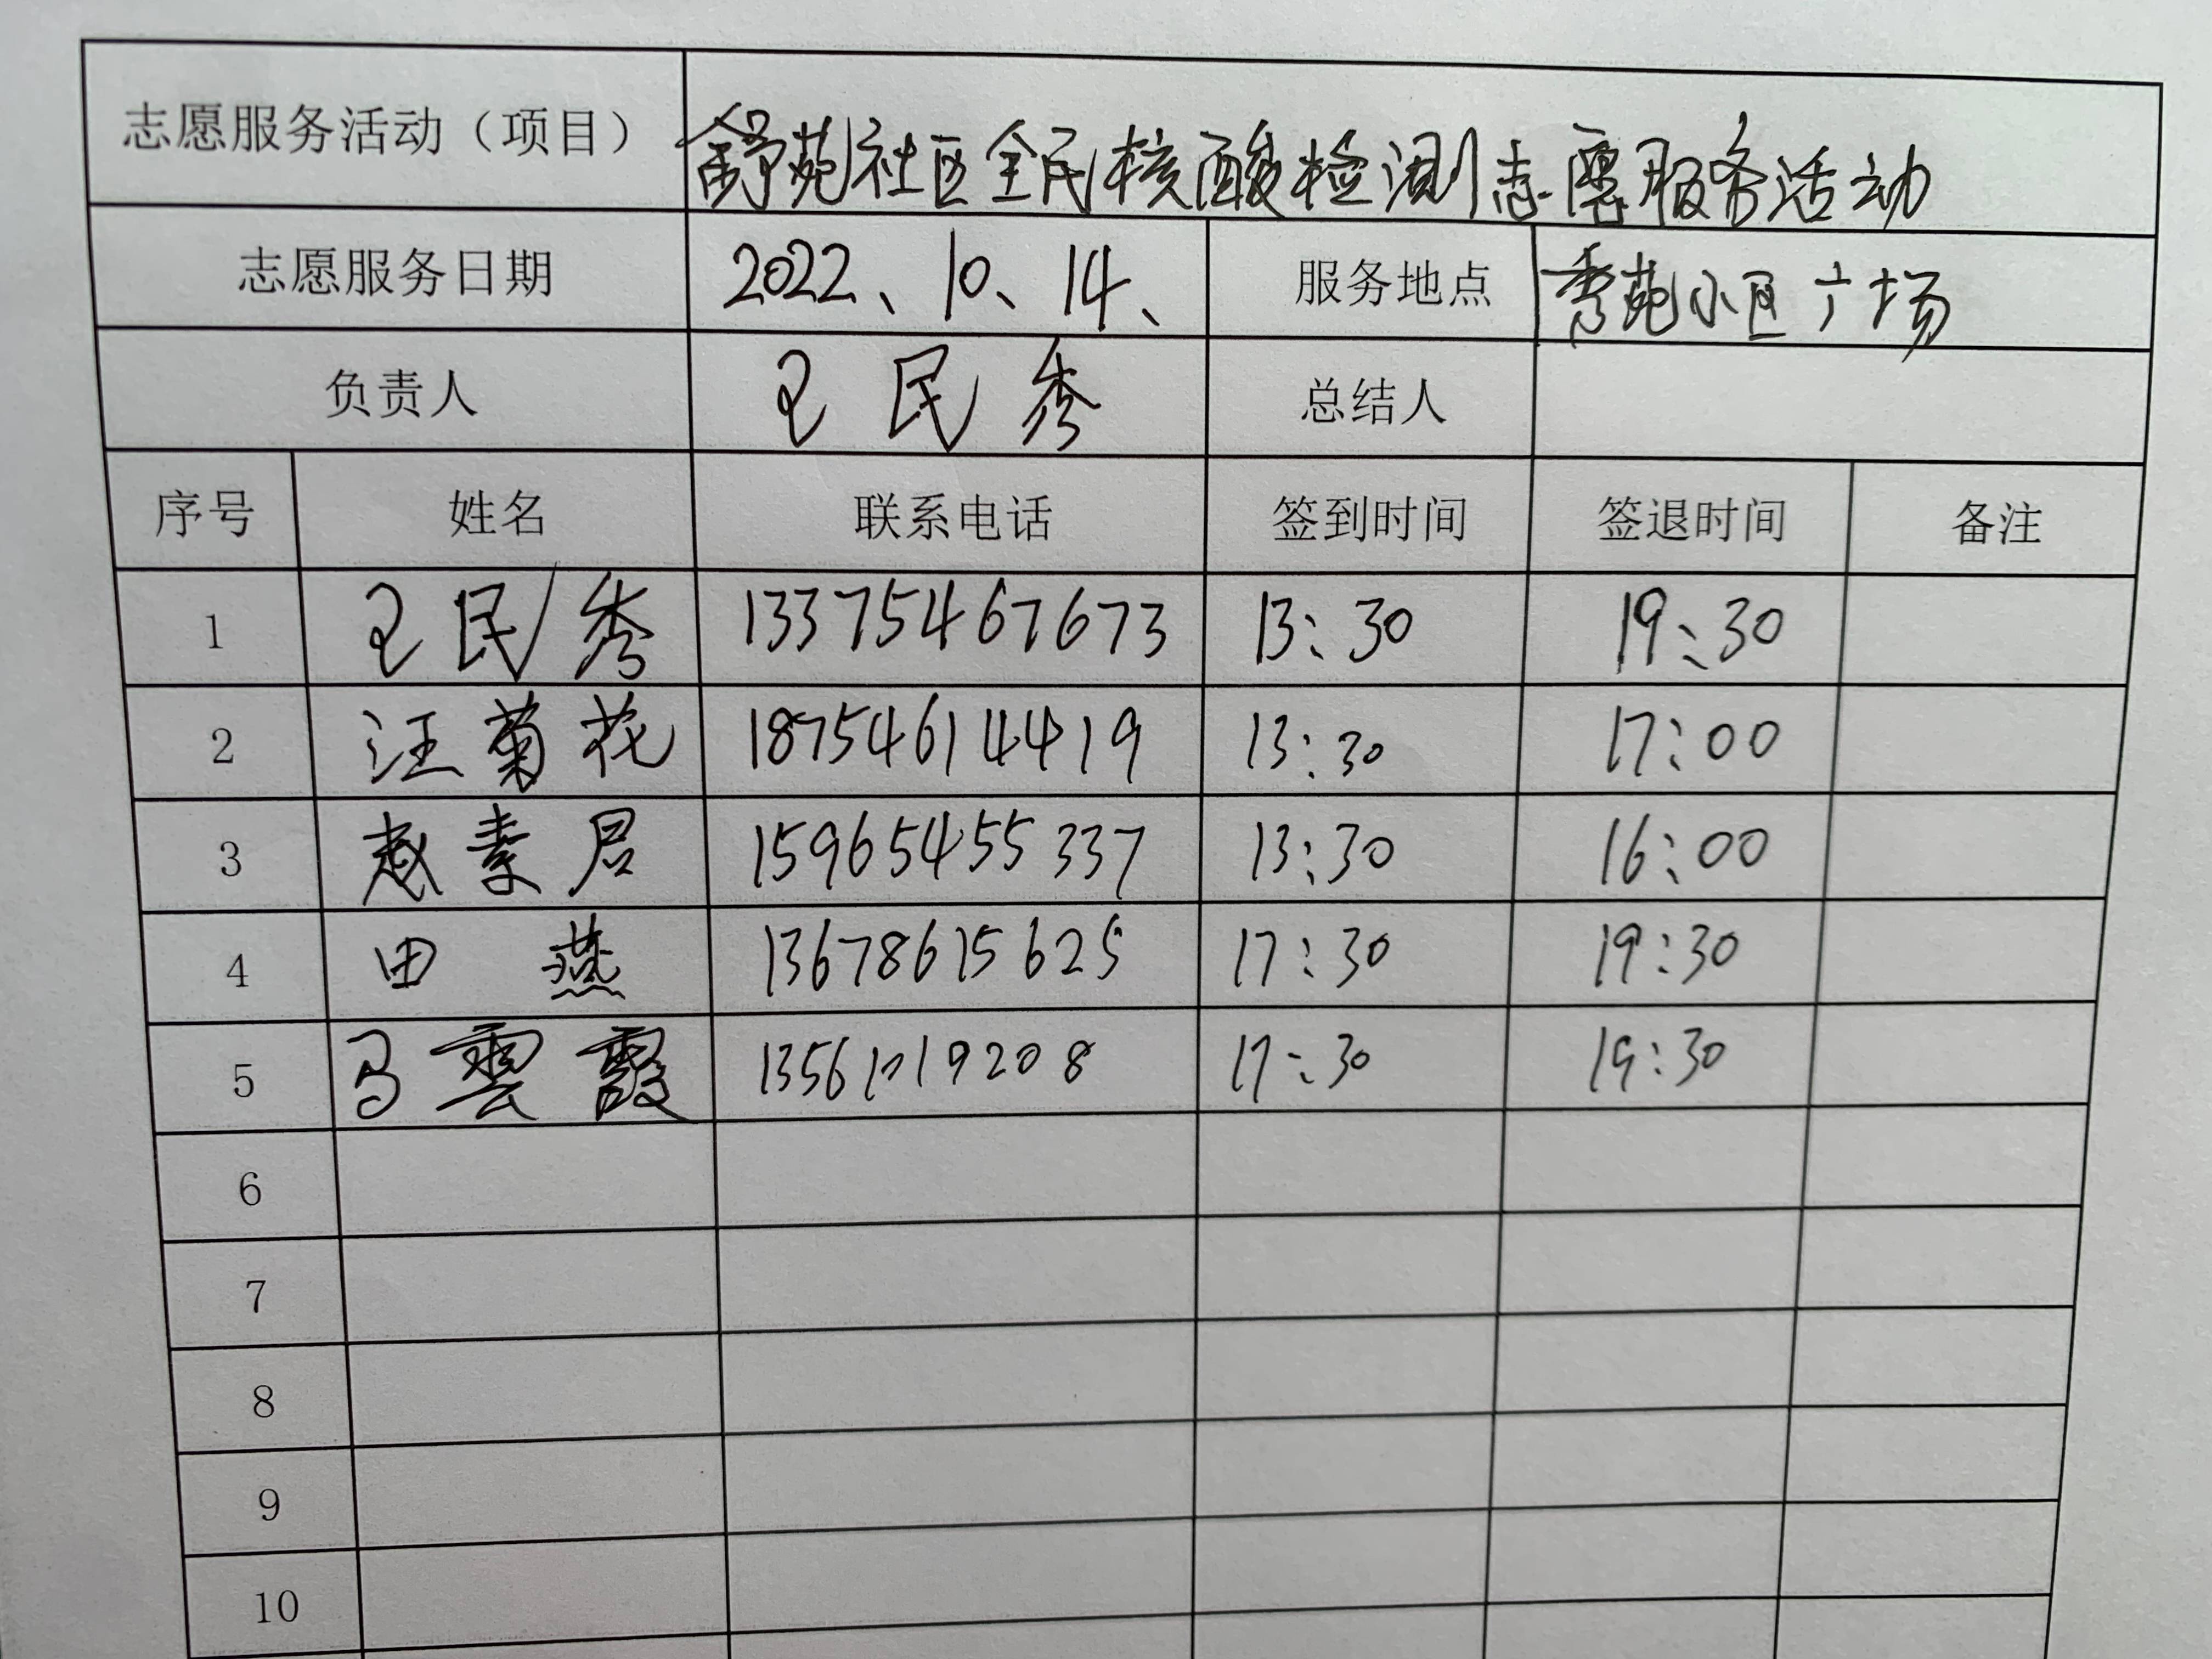 志愿服务活动（项目） 舒苑社区全民核酸检测志愿服务活动
志愿服务日期 2022、10、14、 服务地点 秀苑小区广场
负责人 王民秀 总结人
序号 姓名 联系电话 签到时间 签退时间 备注
1 王民秀 13375467673 13:30 19:30
2 汪菊花 18754614419 13:30 17:00
3 赵素君 15965455337 13:30 16:00
4 田燕 13678615625 17:30 19:30
5 马雲霞 13561019208 17:30 19:30
6
7
8
9
10